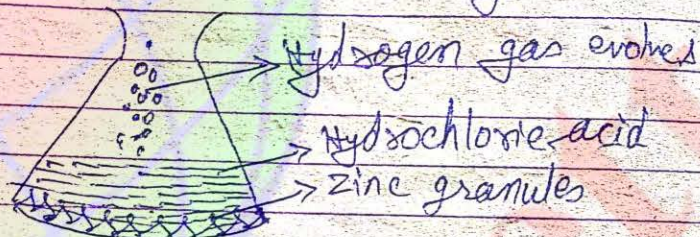 Hydrogen gas evolves
Hydrochloric acid
Zinc granules